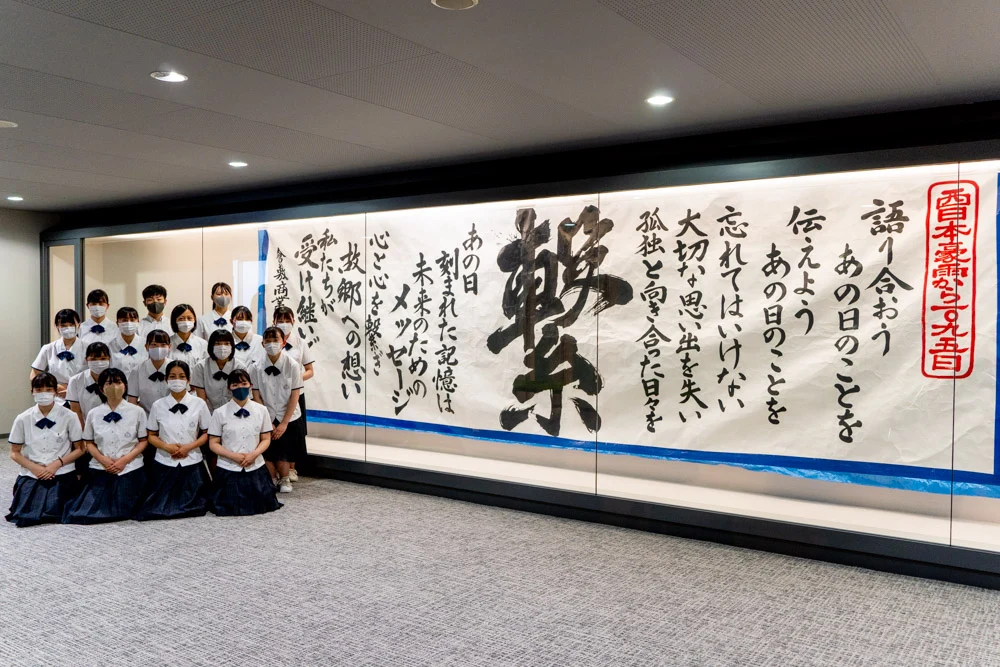 西日本豪雨から一〇九五日
語り合おう
あの日のことを
伝えよう
あの日のことを
忘れてはいけない
大切な思い出を失い
孤独と向き合った日々を
繋
あの日
刻まれた記憶は
未来のための
メッセージ
心と心を繋ぎ
故郷への想い
私たちが
受け継いで
倉敷商業